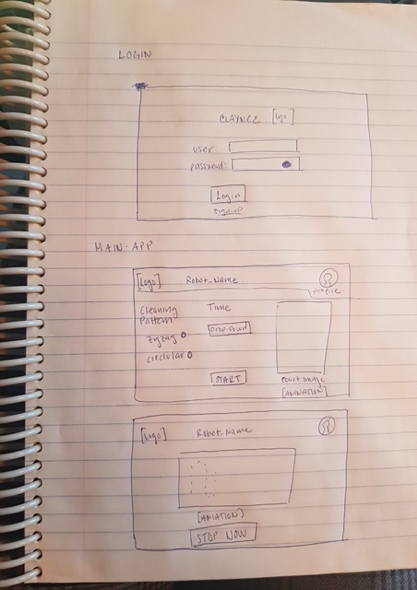 LOGIN
CLAYNCE [logo]
user:
password:
Login
sign-up
MAIN-APP
[logo] Robot-Name
profile
Cleaning Time
Pattern
drop-down
zigzag
circular
START
court image
[ANIMATION]
[logo] Robot-Name
[AMIATION]
STOP NOW